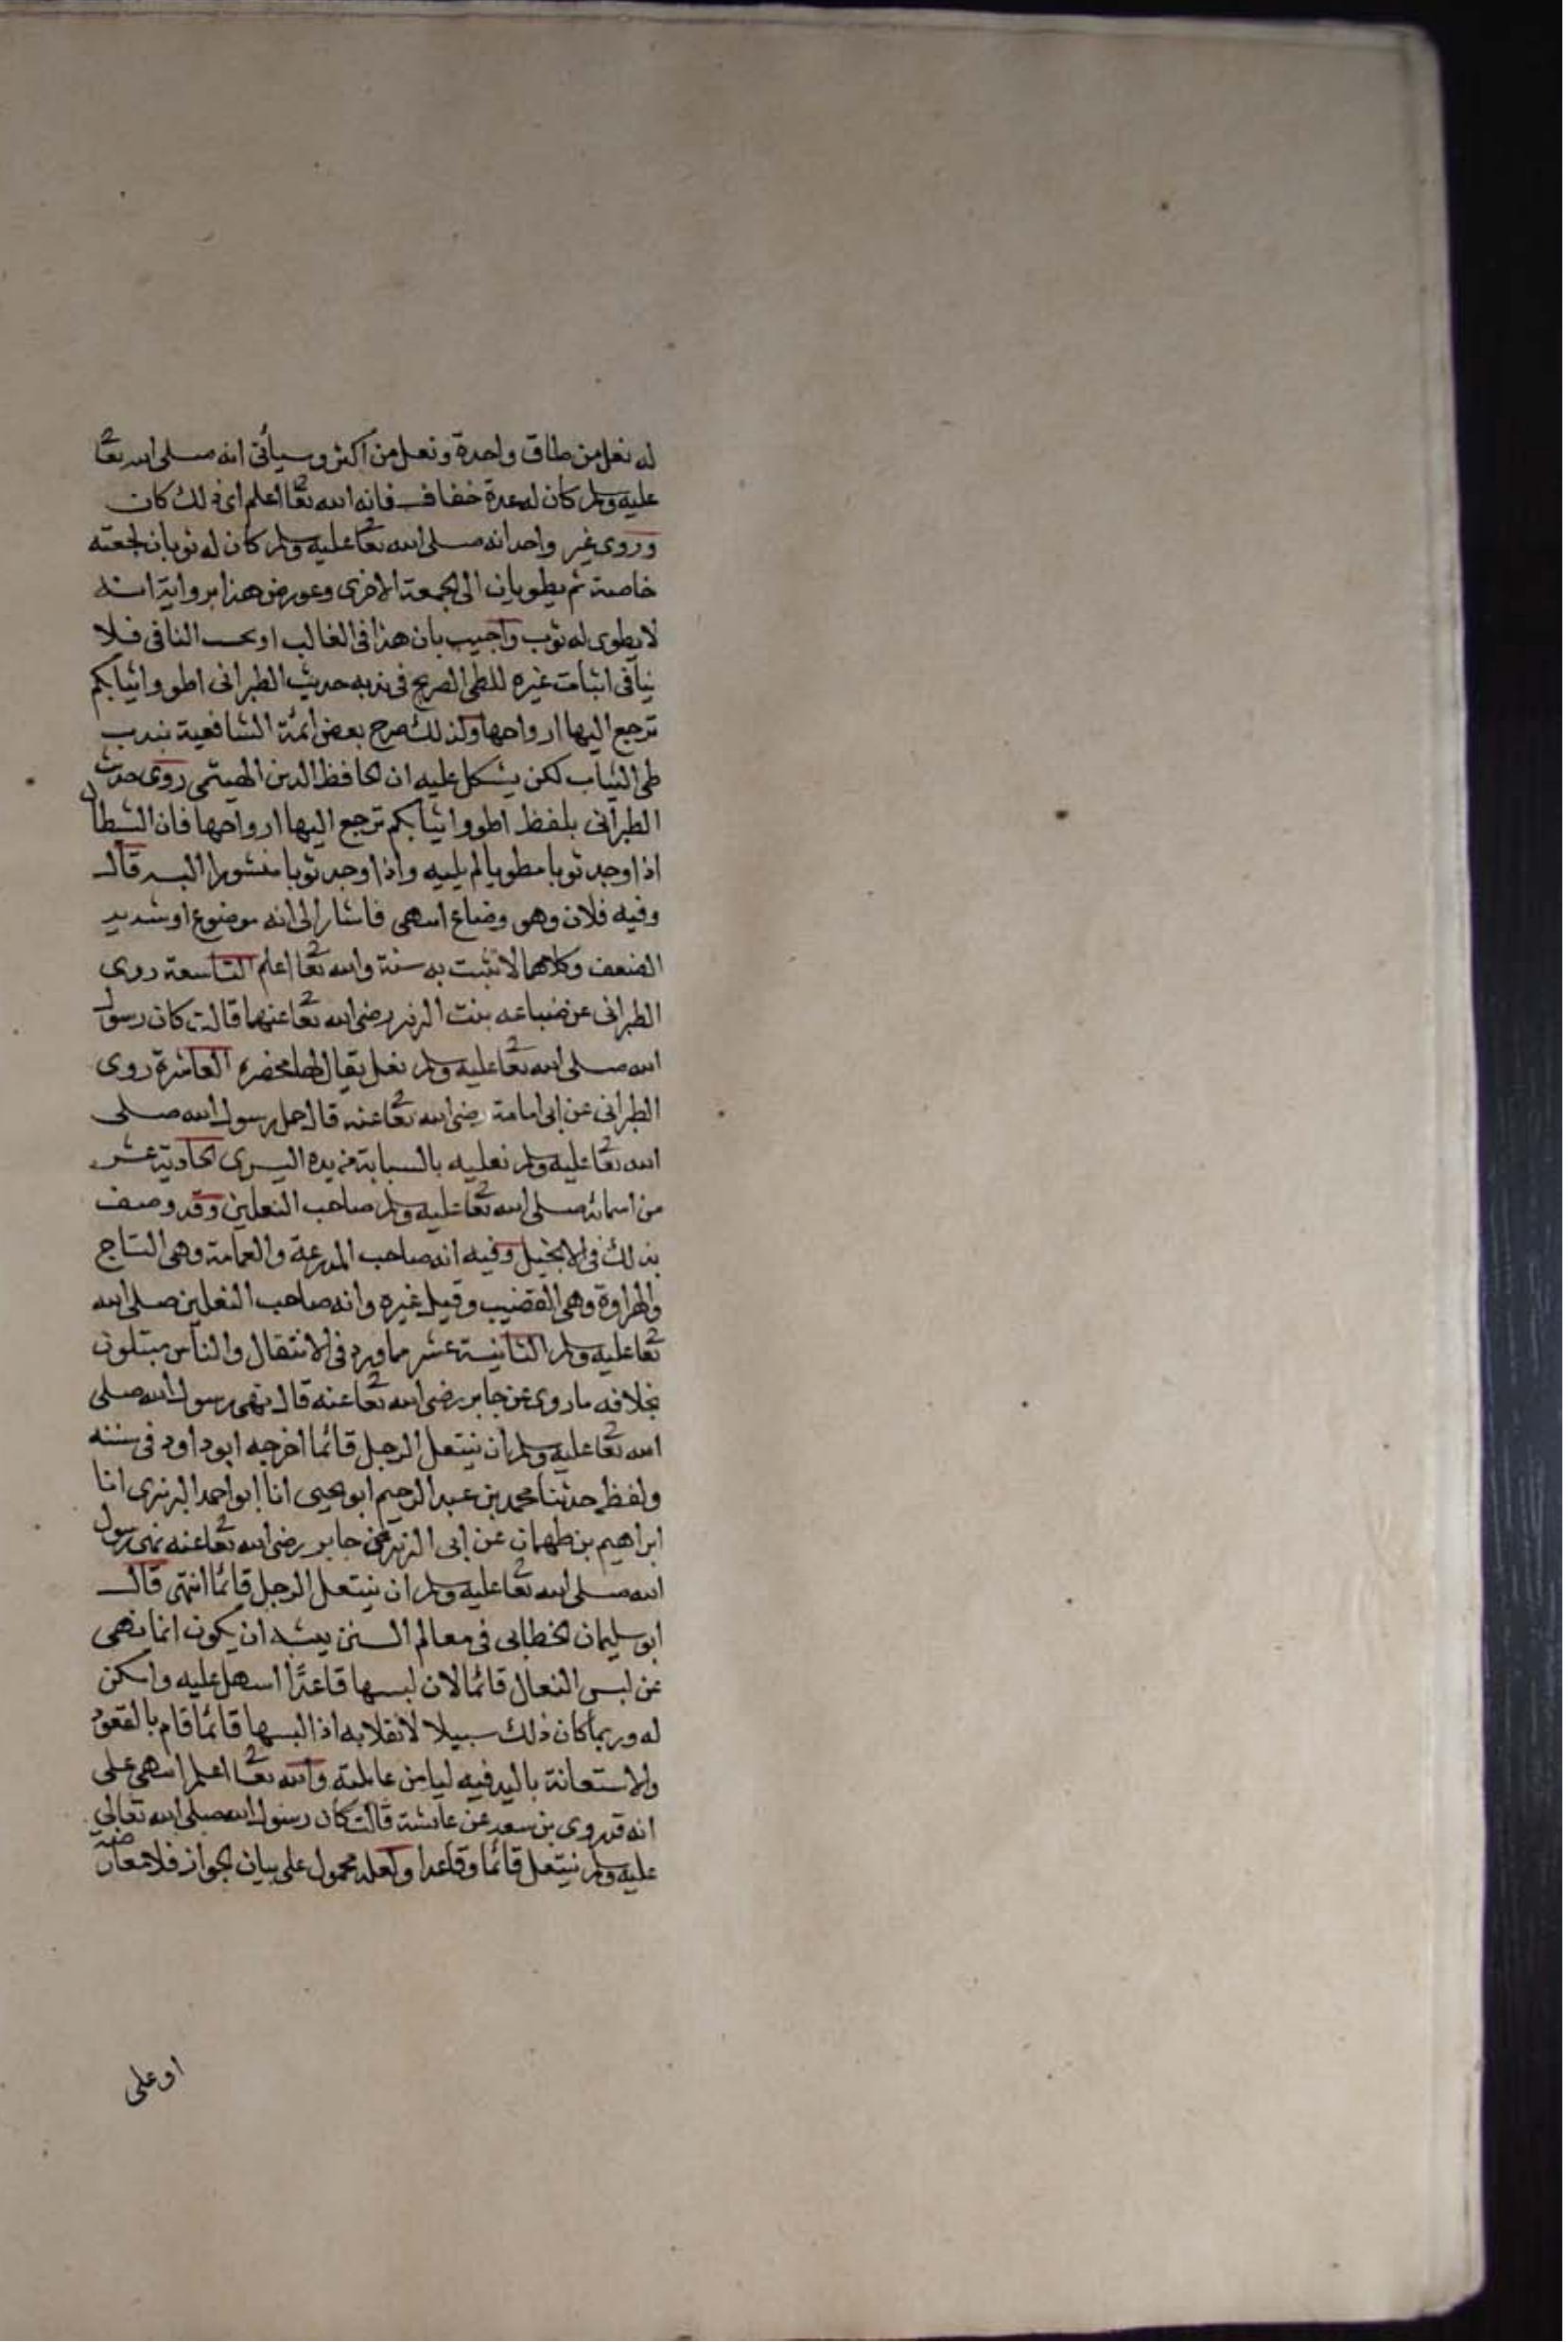 له نعل من طاق واحدة ونعل من اكثر وسيأتى انه صلى الله تعا
عليه وسلم كان له عدة خفاف فانه الله تعا اعلم اى ذلك كان
وروى غير واحد انه صلى الله تعا عليه وسلم كان له ثوبان لجمعته
خاصة ثم يطويان الى الجمعة الاخرى وعورض هذا برواية انه
لا يطوى له ثوب واجيب بان هذا فى الغالب او بحسب النافى فلا
ينافى اثبات غيره للطى الصريح فى ندبه حديث الطبرانى اطووا ثيابكم
ترجع اليها ارواحها ولذلك صرح بعض ائمة الشافعية بندب
طى الثياب لكن يشكل عليه ان الحافظ الدين الهيتمى روى حديث
الطبرانى بلفظ اطووا ثيابكم ترجع اليها ارواحها فان الشيطان
اذا وجد ثوبا مطويا لم يلبسه واذا وجد ثوبا منشورا لبسه قال
وفيه فلان وهو وضاع انتهى فاشار الى انه موضوع او شديد
الضعف وكلاهما لا تثبت به سنة والله تعا اعلم التاسعة روى
الطبرانى عن ضباعه بنت الزبير رضى الله تعا عنهما قالت كان رسول
الله صلى الله تعا عليه وسلم نعل يقال لها مخضره العاشرة روى
الطبرانى عن ابى امامة رضى الله تعا عنه قال حمل رسول الله صلى
الله تعا عليه وسلم نعليه بالسبابة من يده اليسرى الحادية عشر
من اسمائه صلى الله تعا عليه وسلم صاحب النعلين وقد وصف
بذلك فى الانجيل وفيه انه صاحب المدرعة والعمامة وهى التاج
والهراوة وهى القضيب وقيل غيره وانه صاحب النعلين صلى الله
تعا عليه وسلم الثانية عشر مما ورد فى الانتقال والناس مبتلون
بخلافه ما روى عن جابر رضى الله تعا عنه قال نهى رسول الله صلى
الله تعا عليه وسلم ان ينتعل الرجل قائما اخرجه ابو داود فى سننه
ولفظه حدثنا محمد بن عبد الرحيم ابو يحيى انا ابو احمد الزبيرى انا
ابراهيم بن طهمان عن ابى الزبير عن جابر رضى الله تعا عنه نهى رسول
الله صلى الله تعا عليه وسلم ان ينتعل الرجل قائما انتهى قال
ابو سليمان الخطابى فى معالم السنن يشبه ان يكون انما نهى
عن لبس النعال قائما لان لبسها قاعدًا اسهل عليه وامكن
له وربما كان ذلك سبيلا لانقلابه اذا لبسها قائما قام بالقعود
والاستعانة باليد فيه ليامن غائلته والله تعا اعلم انتهى على
انه قد روى بن سعد عن عائشة قالت كان رسول الله صلى الله تعالى
عليه وسلم ينتعل قائما وقاعدا ولعله محمول على بيان الجواز فلا معارضة
او على